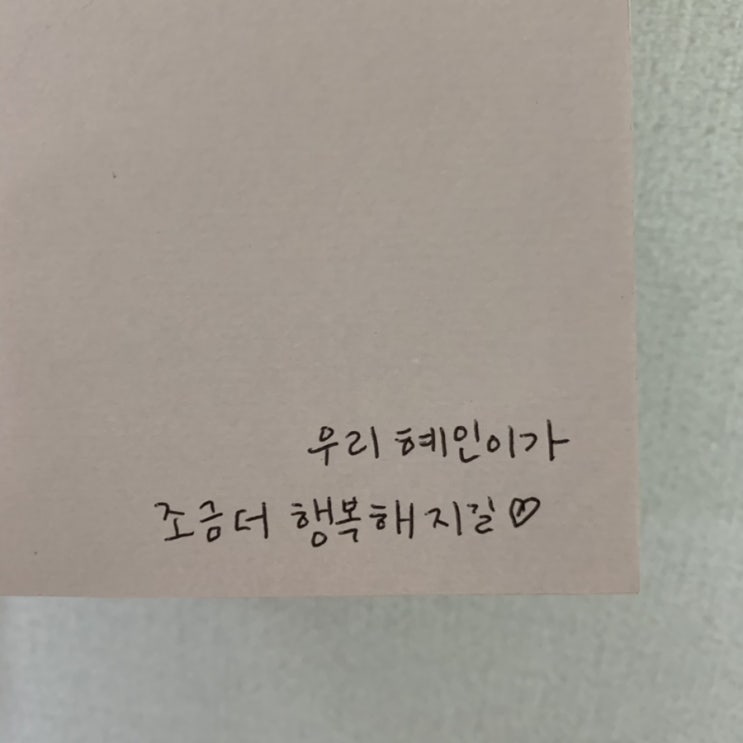 우리 혜인이가
조금더 행복해지길♡